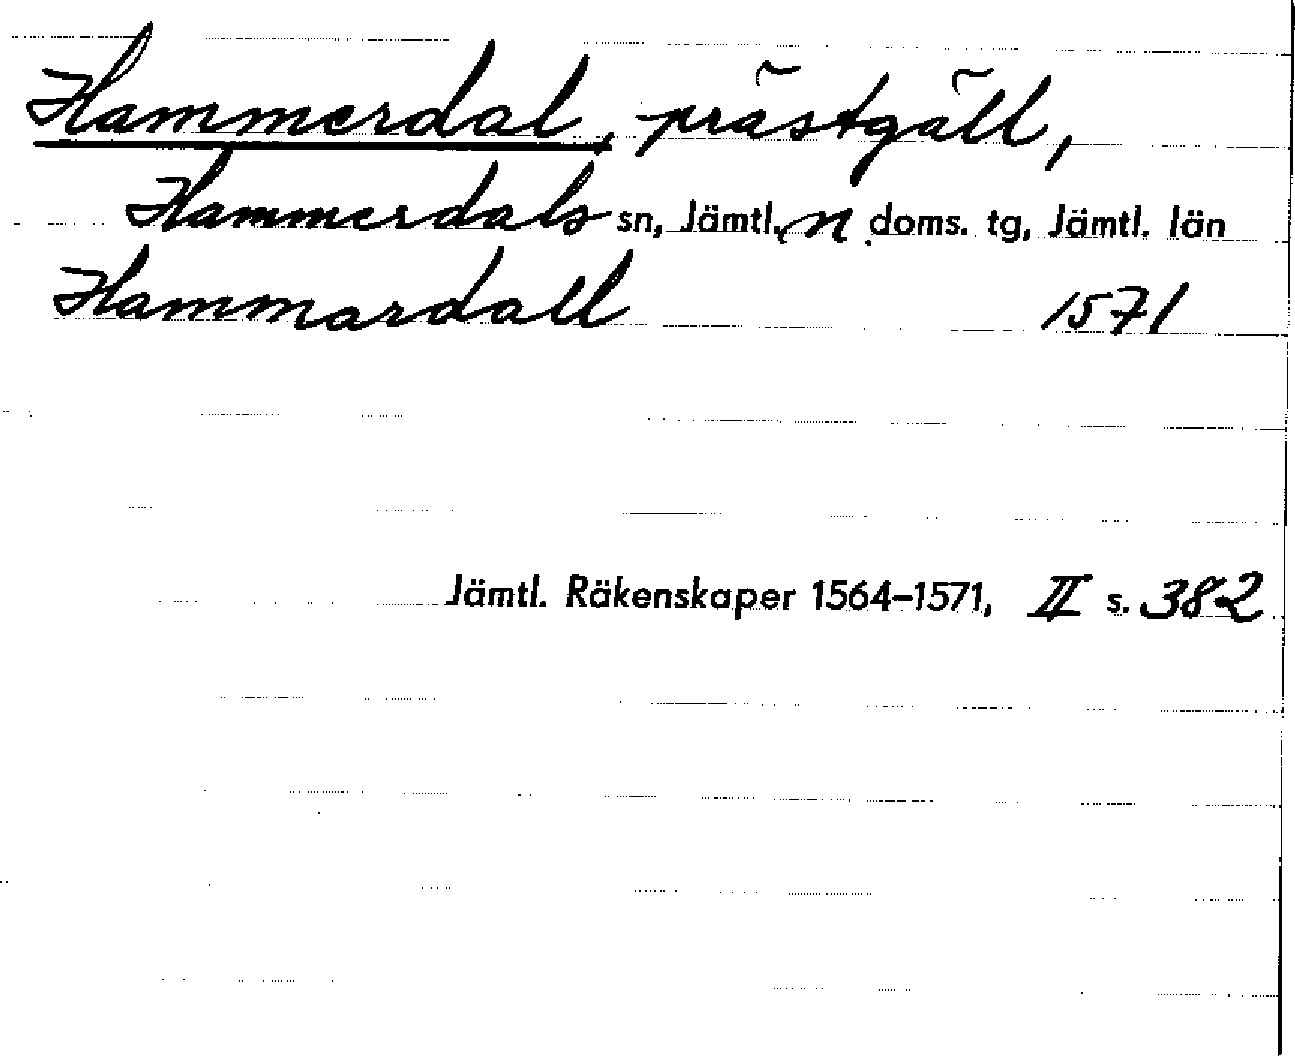 Hammerdal, prästgäll,
Hammerdals sn, Jämtl. n doms. tg, Jämtl. län
Hammardall 1571
Jämtl. Räkenskaper 1564-1571, II s. 382